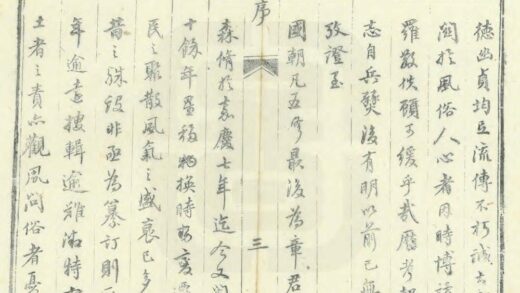 德幽貞均足流傳不朽誠
關於風俗人心者因時博
羅散佚顧可緩乎哉歷考
志自兵燹後有明以前已無
攷證至
國朝凡五修最後為章君
序 三
森脩於嘉慶七年迄今又閱
十餘年星移物換時
民之聚散風氣之盛衰已多
昔之殊設非亟為纂訂則
年逾遠搜輯逾難滋特
土者之責亦觀風問俗者